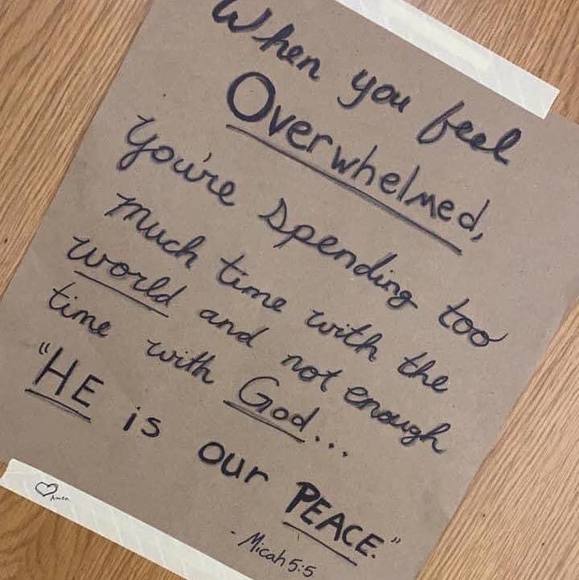 When you feel
Overwhelmed,
You're spending too
much time with the
world and not enough
time with God...
"HE is our PEACE."
- Micah 5:5
Amen